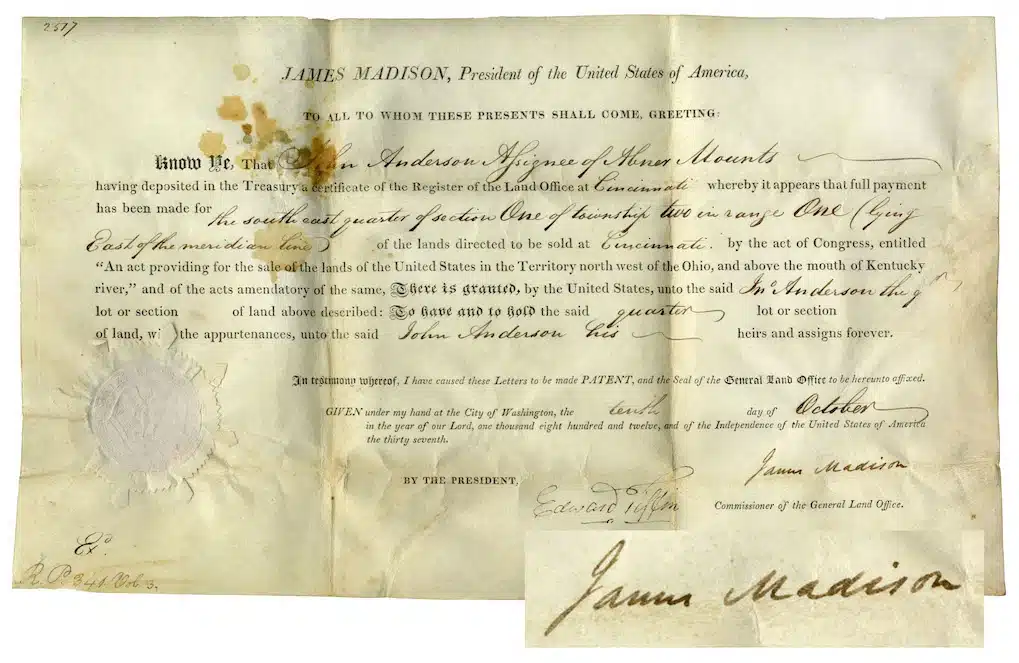 2517
JAMES MADISON, President of the United States of America,
TO ALL TO WHOM THESE PRESENTS SHALL COME, GREETING:
Know Ye, That John Anderson Assignee of Abner Mounts
having deposited in the Treasury a certificate of the Register of the Land Office at Cincinnati whereby it appears that full payment
has been made for the south east quarter of section One of township two in range One (lying
East of the meridian line) of the lands directed to be sold at Cincinnati. by the act of Congress, entitled
"An act providing for the sale of the lands of the United States in the Territory north west of the Ohio, and above the mouth of Kentucky
river," and of the acts amendatory of the same, There is granted, by the United States, unto the said Jno Anderson the q
lot or section of land above described: To have and to hold the said quarter lot or section
of land, wi the appurtenances, unto the said John Anderson his heirs and assigns forever.
In testimony whereof, I have caused these Letters to be made PATENT, and the Seal of the General Land Office to be hereunto affixed.
GIVEN under my hand at the City of Washington, the tenth day of October
in the year of our Lord, one thousand eight hundred and twelve, and of the Independence of the United States of America
the thirty seventh.
James Madison
BY THE PRESIDENT,
Edward Tiffin Commissioner of the General Land Office.
Exd.
R. P. 341 Vol 3.
James Madison